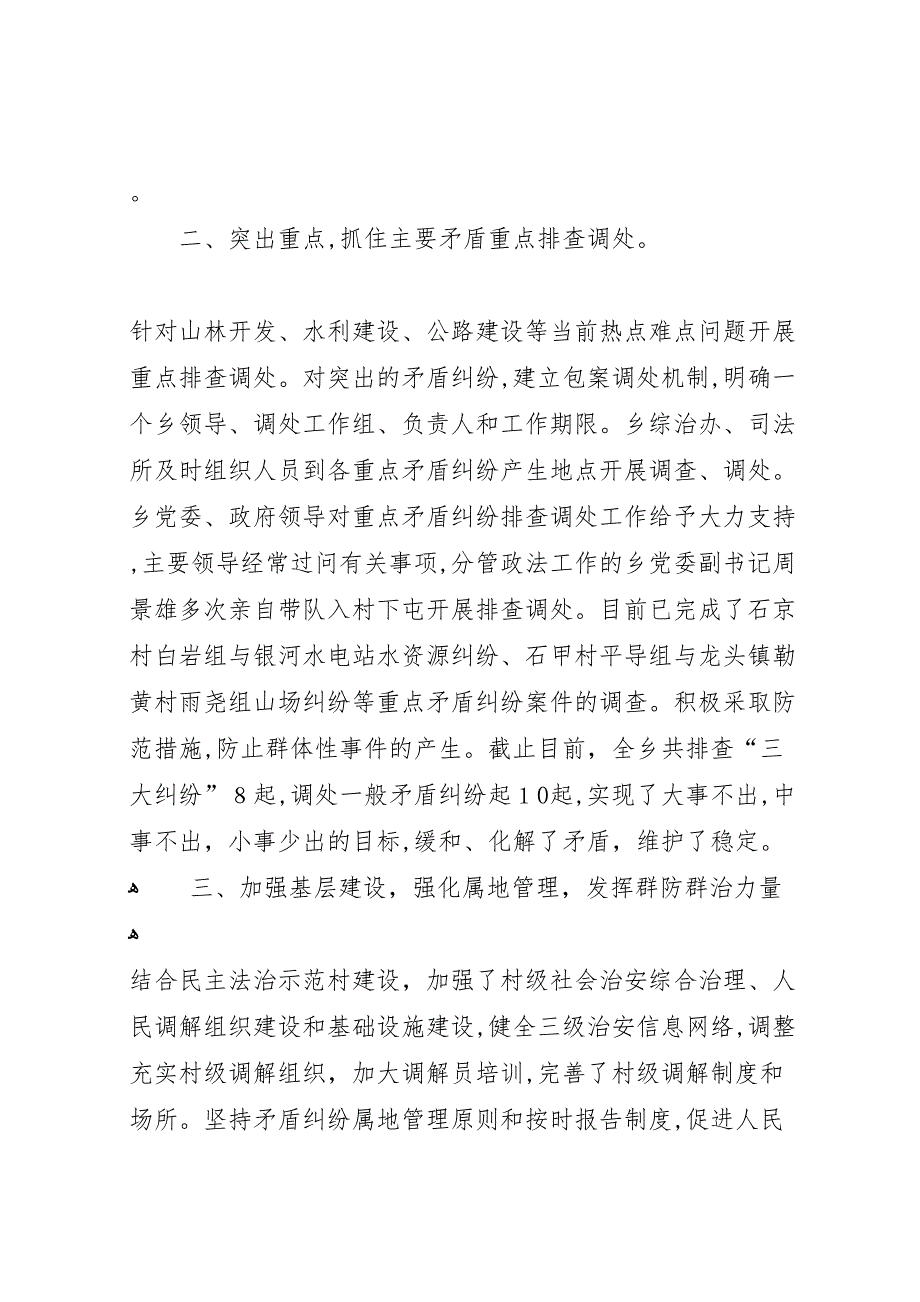 。
二、突出重点,抓住主要矛盾重点排查调处。
针对山林开发、水利建设、公路建设等当前热点难点问题开展
重点排查调处。对突出的矛盾纠纷,建立包案调处机制,明确一
个乡领导、调处工作组、负责人和工作期限。乡综治办、司法
所及时组织人员到各重点矛盾纠纷产生地点开展调查、调处。
乡党委、政府领导对重点矛盾纠纷排查调处工作给予大力支持
,主要领导经常过问有关事项,分管政法工作的乡党委副书记周
景雄多次亲自带队入村下屯开展排查调处。目前已完成了石京
村白岩组与银河水电站水资源纠纷、石甲村平导组与龙头镇勒
黄村雨尧组山场纠纷等重点矛盾纠纷案件的调查。积极采取防
范措施,防止群体性事件的产生。截止目前，全乡共排查“三
大纠纷”8起,调处一般矛盾纠纷起10起,实现了大事不出,中
事不出，小事少出的目标,缓和、化解了矛盾，维护了稳定。
ﻫ 三、加强基层建设，强化属地管理，发挥群防群治力量
ﻫ
结合民主法治示范村建设，加强了村级社会治安综合治理、人
民调解组织建设和基础设施建设,健全三级治安信息网络,调整
充实村级调解组织，加大调解员培训,完善了村级调解制度和
场所。坚持矛盾纠纷属地管理原则和按时报告制度,促进人民